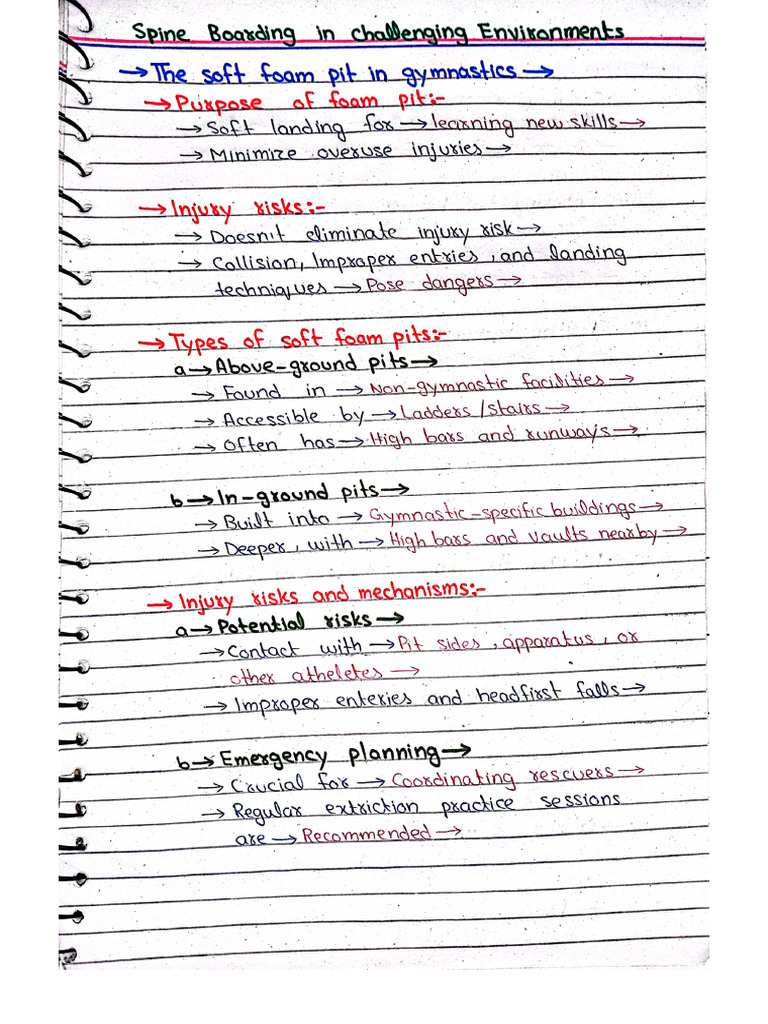 Spine Boarding in challenging Environments
→ The soft foam pit in gymnastics →
→ Purpose of foam pit:-
→ Soft landing for → learning new skills →
→ Minimize overuse injuries →
→ Injury risks:-
→ Doesn't eliminate injury risk →
→ Collision, Improper entries, and landing
techniques → Pose dangers →
→ Types of soft foam pits:-
a → Above-ground pits →
→ Found in → Non-gymnastic facilities →
→ Accessible by → Ladders/stairs →
→ Often has → High bars and runways →
b → In-ground pits →
→ Built into → Gymnastic-specific buildings →
→ Deeper, with → High bars and vaults nearby →
→ Injury risks and mechanisms:-
a → Potential risks →
→ Contact with → Pit sides, apparatus, or
other atheletes →
→ Improper enteries and headfirst falls →
b → Emergency planning →
→ Crucial for → Coordinating rescuers →
→ Regular extriction practice sessions
are → Recommended →